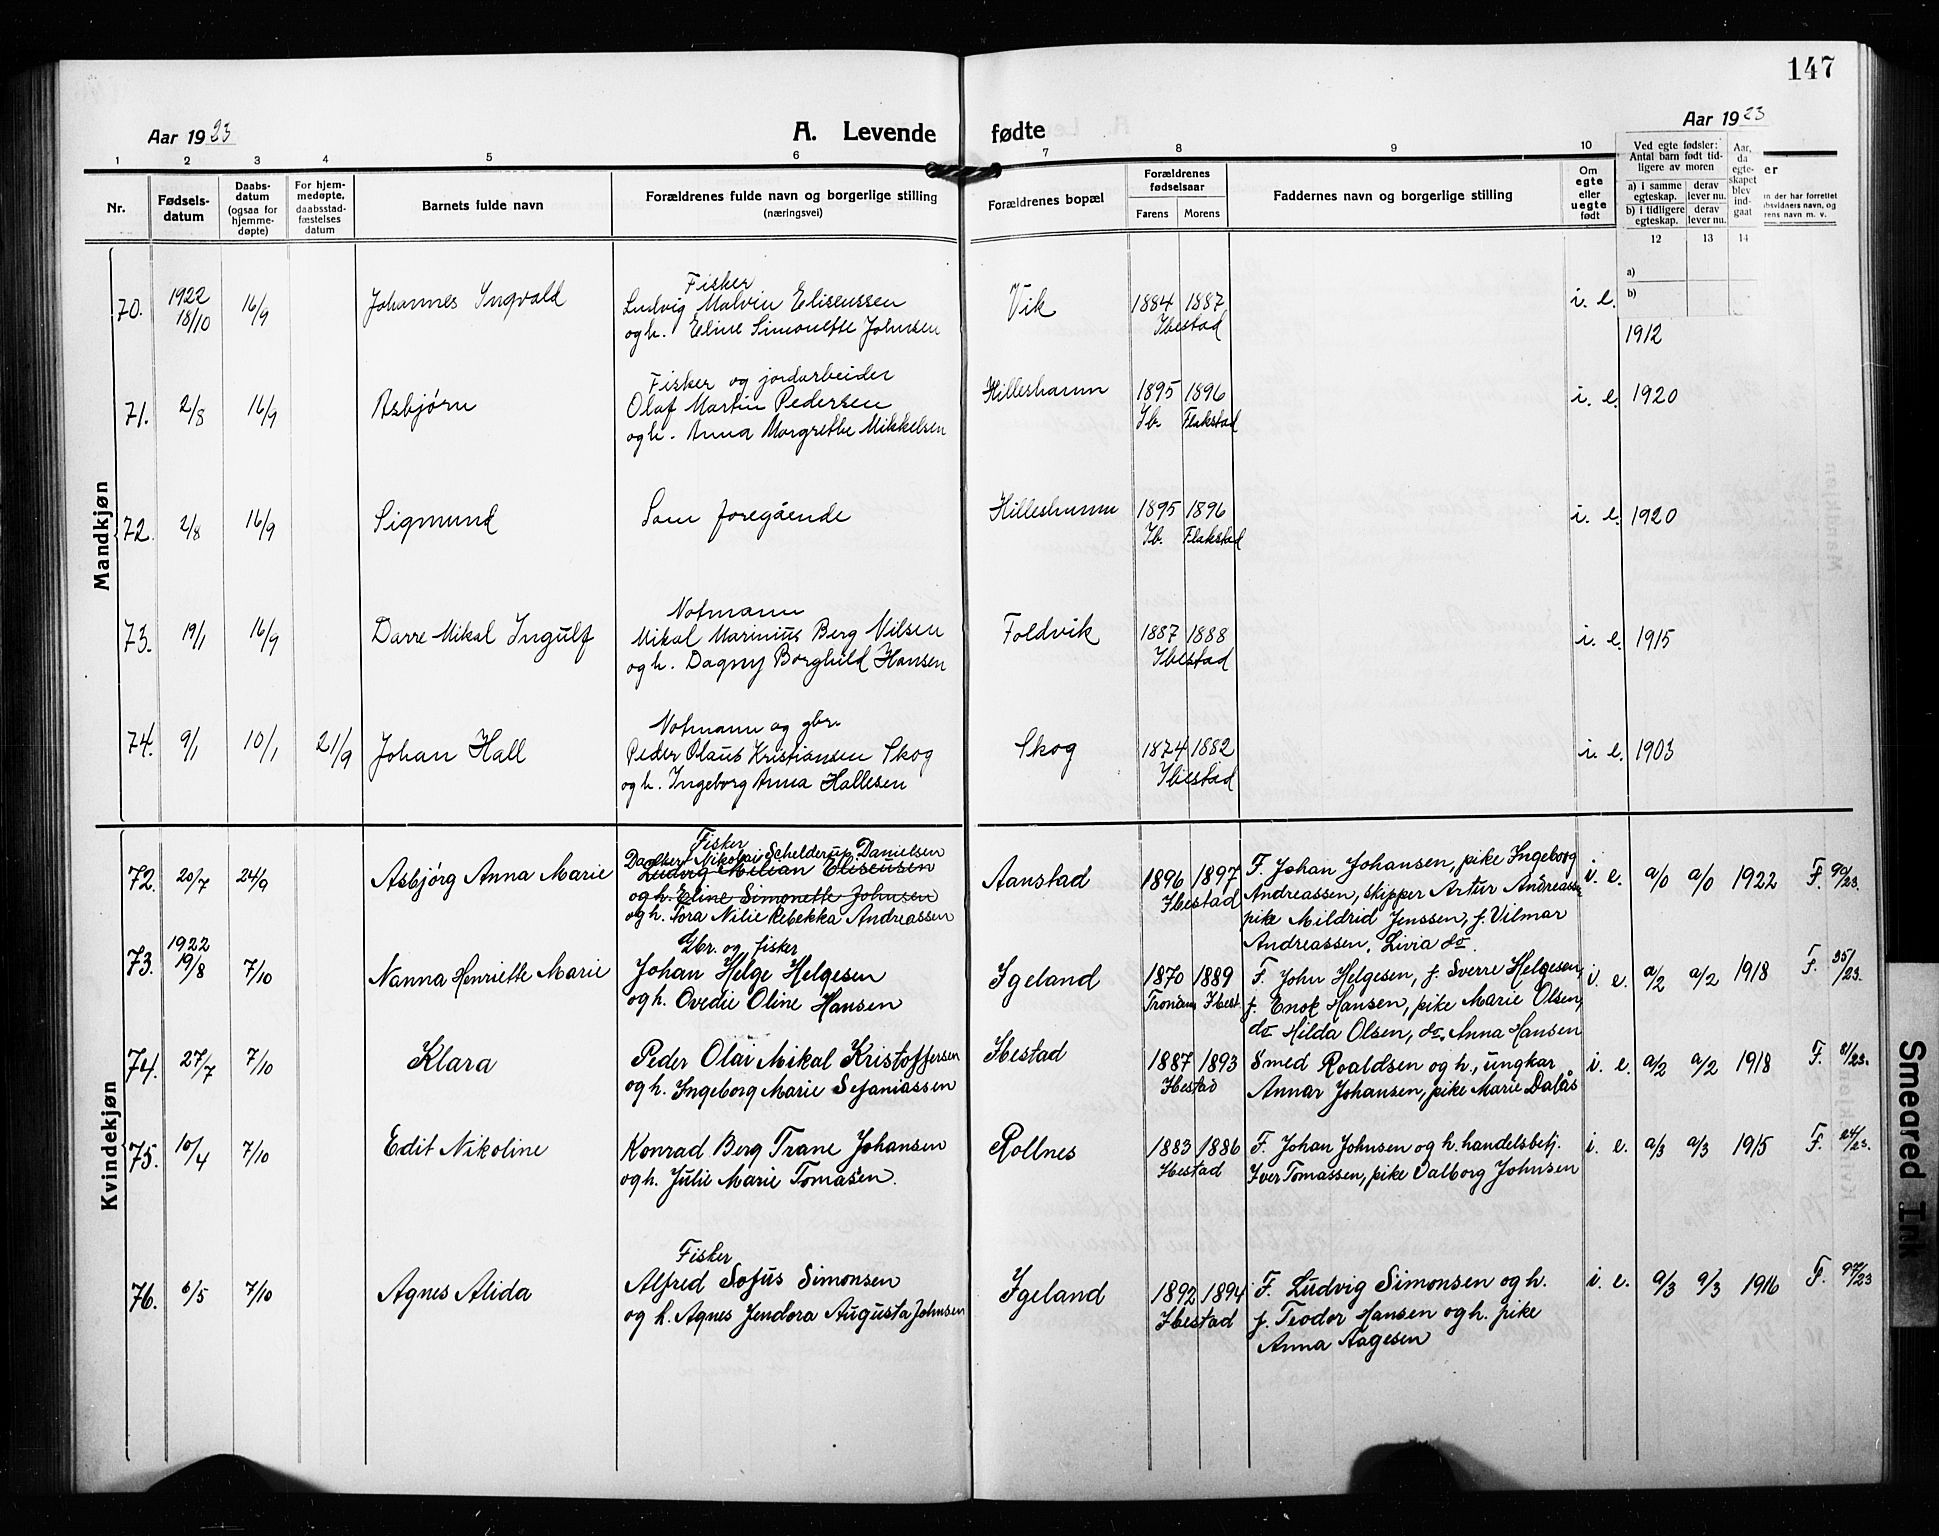 147
Aar 1923
A. Levende fødte
Aar 1923
1 2 3 4 5 6 7 8 9 10
Nr.
Fødsels-
datum
Daabs-
datum
(ogsaa for
hjemme-
døpte)
For hjem-
medøpte,
daabsstad-
fæstelses
datum
Barnets fulde navn
Forældrenes fulde navn og borgerlige stilling
(næringsvei)
Forældrenes bopæl
Forældrenes
fødselsaar
Farens Morens
Faddernes navn og borgerlige stilling
Om
egte
eller
uegte
født
Ved egte fødsler:
Antal barn født tid-
ligere av moren
a) i samme
egteskap.
derav
lever nu.
b) i tidligere
egteskap.
derav
lever nu.
Aar,
da
egte-
skapet
blev
ind-
gaat
12 13 14
a)
b)
er
n der har forrettet
bsvidners navn, og
rens navn m. v.
Mandkjøn
70. 1922 18/10 16/9 Johannes Ingvald
Fisker
Ludvig Malvin Eliseussen
og h. Eline Simonette Johnsen
Vik 1884 1887 i. e.
Ibestad
1912
71. 2/8 16/9 Asbjørn
Fisker og jordarbeider
Olaf Martin Pedersen
og h. Anna Margrethe Mikkelsen
Hilleshamn 1895 1896 i. e. 1920
Ib. Flakstad
72. 2/8 16/9 Sigmund Som foregående Hilleshamn 1895 1896 i. e. 1920
Ib. Flakstad
73. 19/1 16/9 Darre Mikal Ingulf
Notmann
Mikal Marinius Berg Nilsen
og h. Dagny Borghild Hansen
Foldvik 1887 1888 i. e. 1915
Ibestad
74. 9/1 10/1 21/9 Johan Hall
Notmann og gbr.
Peder Olaus Kristiansen Skog
og h. Ingeborg Anna Hallesen
Skog 1874 1882 i. e. 1903
Ibestad
Kvindekjøn
72. 20/7 24/9 Asbjørg Anna Marie
Fisker
Nikolai Schelderup Danielsen
Ludvig Milian Eliseusen
og h. Eline Simonette Johnsen
og h. Tora Nilie Rebekka Andreassen
Aanstad 1896 1897
Ibestad
F. Johan Johansen, pike Ingeborg
Andreassen, skipper Artur Andreassen
pike Mildrid Jenssen, f. Vilmar
Andreassen, Livia do.
i. e. a/0 a/0 1922 F. 90/23.
73. 1922 19/8 7/10 Nanna Henriette Marie
Gbr. og fisker
Johan Helge Helgesen
og h. Ovedie Oline Hansen
Igeland 1870 1889
Ibest.
F. John Helgesen, f. Sverre Helgesen,
f. Enok Hansen, pike Marie Olsen,
do Hilda Olsen, do. Anna Hansen
i. e. a/2 a/2 1918 F. 35/23.
74. 27/7 7/10 Klara
Peder Olai Mikal Kristoffersen
og h. Ingeborg Marie Sefaniassen
Ibestad 1887 1893
Ibestad
Smed Roaldsen og h., ungkar
Annar Johansen, pike Marie Dalås
i. e. a/2 a/2 1918 F.
75. 10/4 7/10 Edit Nikoline
Konrad Berg Trane Johansen
og h. Julie Marie Tomasen.
Rollnes 1883 1886
Ibestad
F. Johan Johnsen og h. handelsbetj.
Iver Tomassen, pike Valborg Johnsen
i. e. a/3 a/3 1915 F. 24/23.
76. 6/5 7/10 Agnes Alida
Fisker
Alfred Sofus Simonsen
og h. Agnes Jendora Augusta Johnsen
Igeland 1892 1894
Ibestad
F. Ludvig Simonsen og h.
f. Teodor Hansen og h. pike
Anna Aagesen
i. e. a/3 a/3 1916 F. 97/23
Smeared Ink